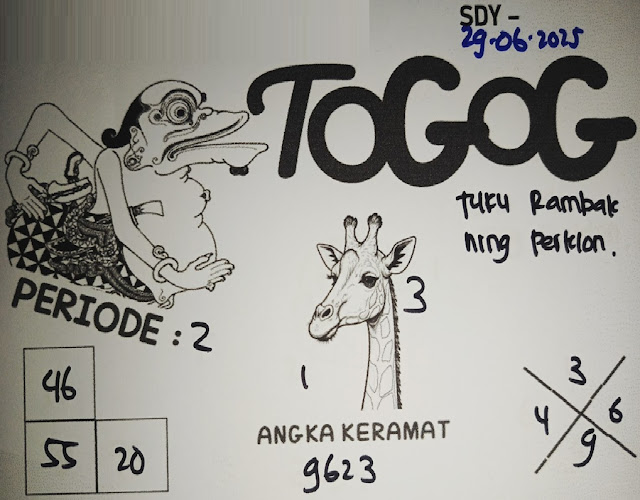 SDY –
29-06-2025
TOGOG
tuku Rambak
ning perklon.
PERIODE : 2
3
1
46
55 20
ANGKA KERAMAT
9623
3
4 6
9